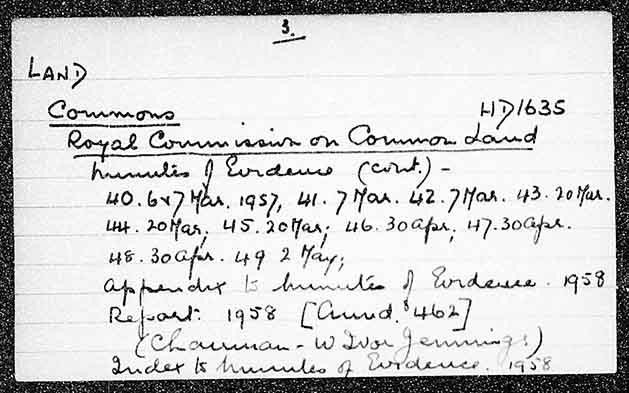 3.
LAND
Commons HD1635
Royal Commission on Common Land
Minutes of Evidence (cont.) -
40. 6&7 Mar. 1957, 41. 7 Mar. 42. 7 Mar. 43. 20 Mar.
44. 20 Mar; 45. 20 Mar; 46. 30 Apr; 47. 30 Apr.
48. 30 Apr. 49 2 May;
Appendix to Minutes of Evidence. 1958
Report. 1958 [Cmnd. 462]
(Chairman - W Ivor Jennings)
Index to Minutes of Evidence. 1958